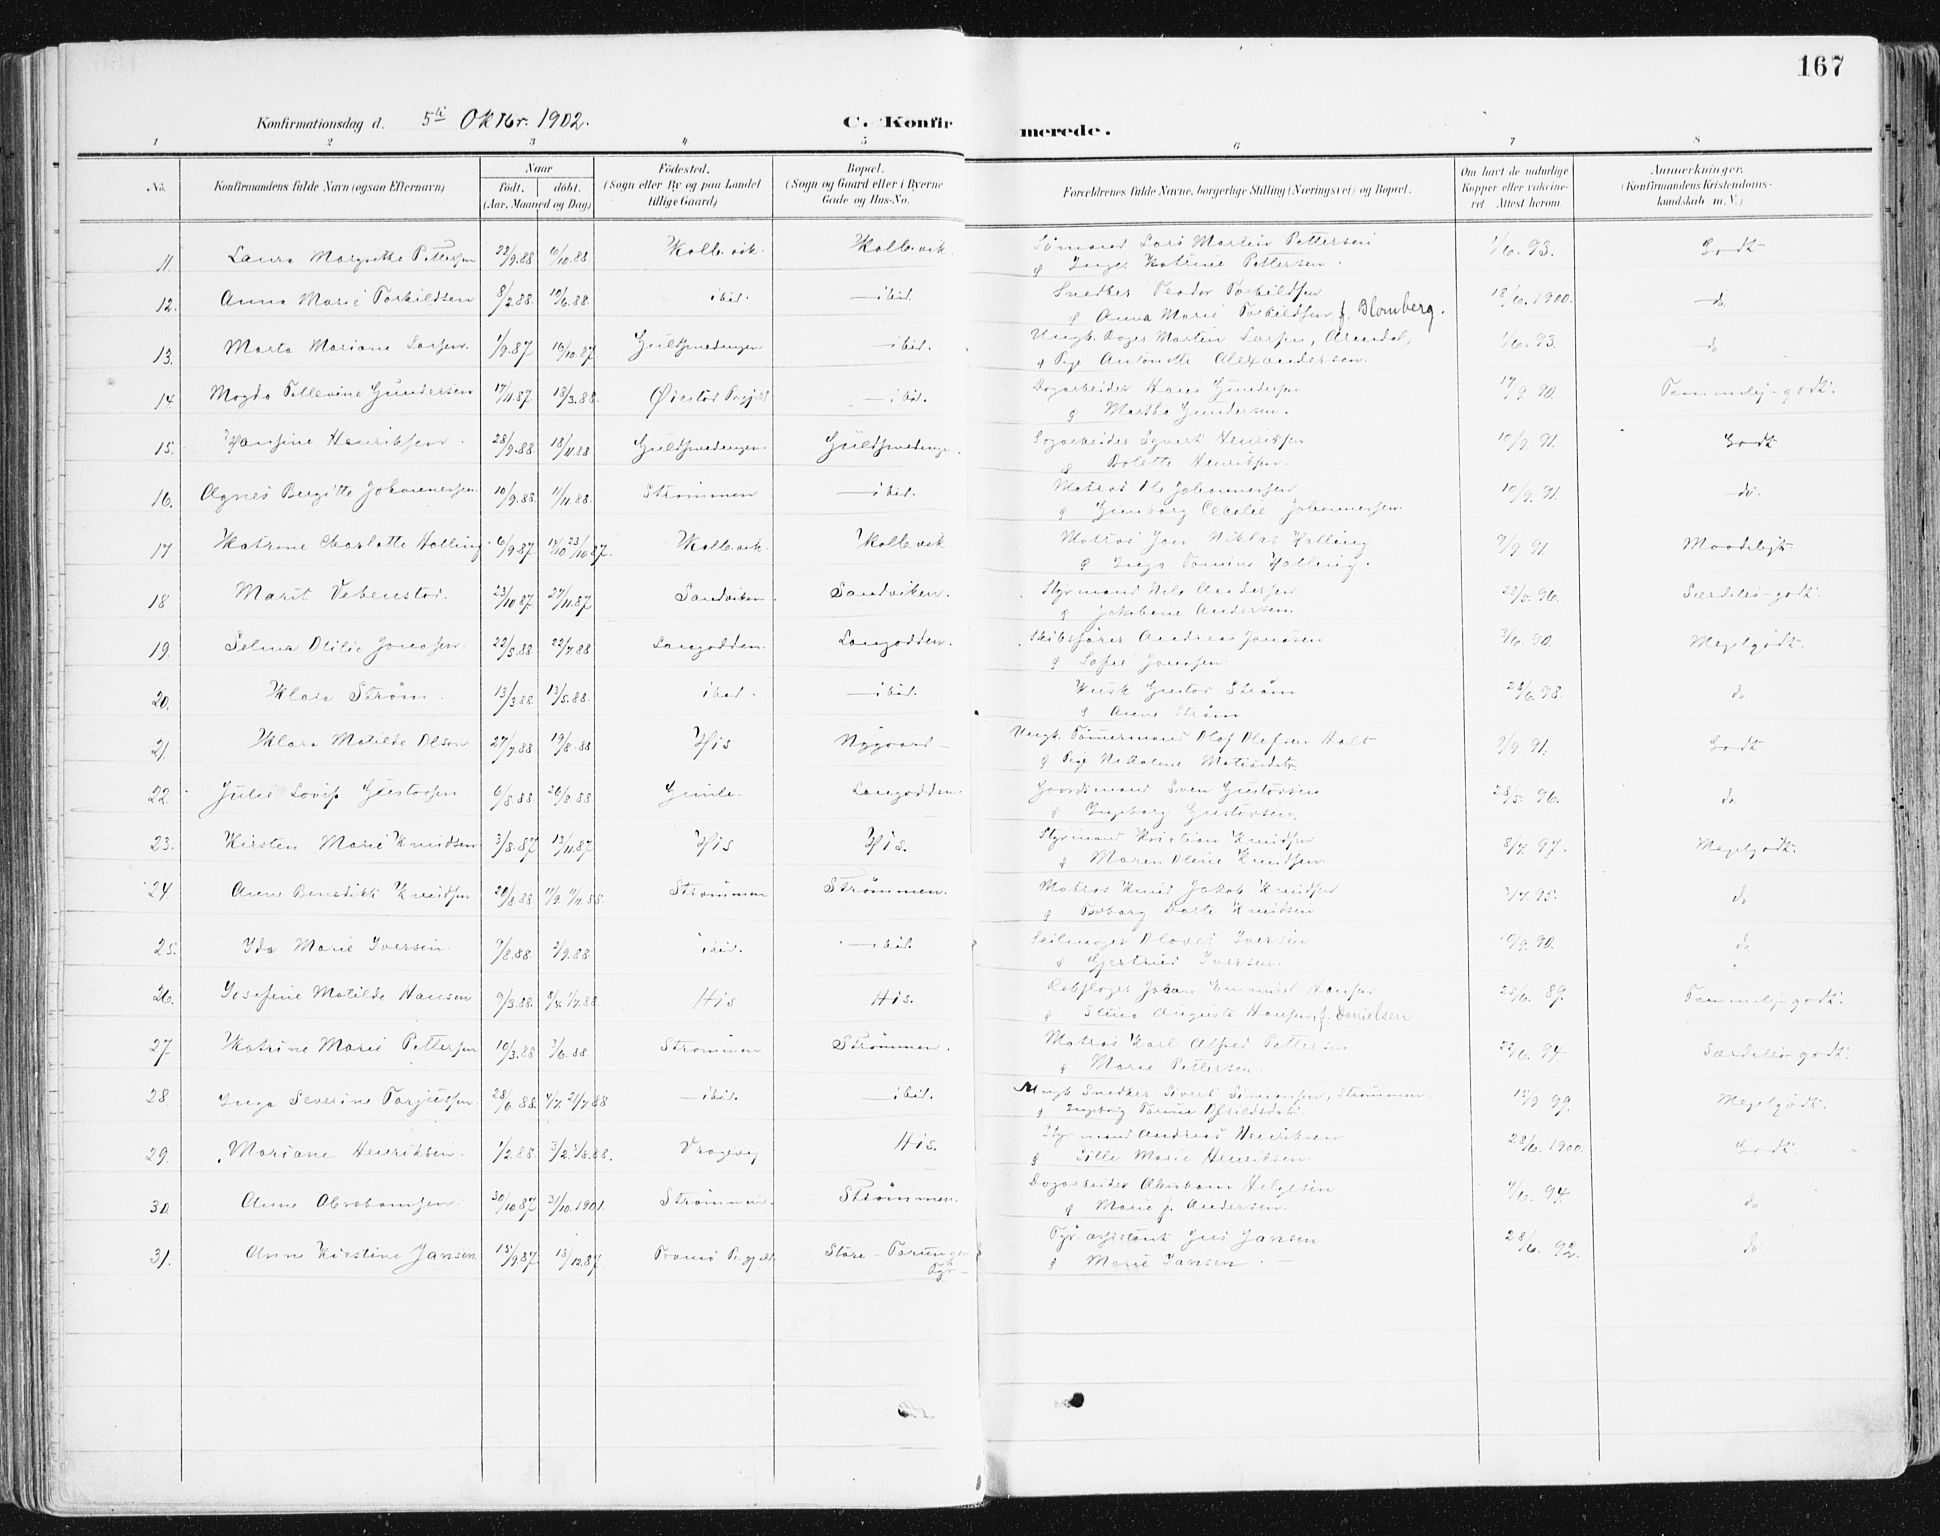 167
Konfirmationsdag d. 5te Oktbr. 1902.
C. Konfirmerede.
1 2 3 4 5 6 7 8
No. Konfirmandens fulde Navn (ogsaa Efternavn) Naar født. døbt. (Aar, Maaned og Dag) Fødested. (Sogn eller By og paa Landet tillige Gaard) Bopæl. (Sogn og Gaard eller i Byerne Gade og Hus-No. Forældrenes fulde Navne, borgerlige Stilling (Næringsvei) og Bopæl. Om havt de naturlige Kopper eller vaksineret Attest herom. Anmærkninger. (Konfirmandens Kristendomskundskab m. V.)
11 Laura Margrethe Pettersen 22/9.88 Kolbvik. Kolbvik. Sømand Lars Martin Pettersen 1/6.93. Godt
& Inger Katrine Pettersen.
12. Anna Marie Torkildsen 8/2.88 10/6.88 ibid. — ibid. Snedker Teodor Torkildsen 18/6.1900. — do
& Anna Marie Torkildsen f. Blomberg.
13. Marta Mariane Larsen 1/9.87 16/10.87 Guldsmedengen — ibid. Ungk. Bager Martin Larsen, Arendal, 1/6.93. — do
& Pige Antonette Alexandersen.
14. Magda Tellevine Gundersen 17/11.87 18/3.88. Øiestad Prgjld — ibid. Dagarbeider Hans Gundersen 17/9 90. Temmelig godt.
& Martha Gundersen.
15. Hansine Henriksen. 28/9.88 18/11.88 Guldsmedengen. Guldsmedengen. Henriksen 10/9 91. Godt
& Bolette Henriksen.
16. Agnes Bergitte Johannessen. 10/9.88. 11/11.88. Strømmen — ibid. Matros Ole Johannessen 10/9.91. — do.
& Gunborg Cecilie Johannessen.
17 Katrine Charlotte Halling. 6/9.87 23/10.87. Kolbvik. Kolbvik Matros Jan Niklas Halling 9/9 91 Maadeligt.
& Inga Tomine Halling.
18. Marit Vebenstad. 23/10.87. 27/11.87 Sandviken Sandviken. Styrmand Nils Andersen 22/5.96. Særdeles godt.
& Jakobine Andersen.
19. Selma Otilie Jonassen 22/5.88 22/7.88 Langodden. Langodden. Skibsfører Andreas Jonassen 3/6.90. Meget godt.
& Sofie Jonassen.
20. Klara Strøm. 13/3.88. 13/5.88. ibid. — ibid. Kusk Gustav Strøm 28/6.98. do
& Anne Strøm
21. Klara Matilde Olsen 27/7.88. 19/8.88 His Nygaard — Ungk. Tømmermand Olaf Olafsen Holt 9/9 91. Godt
& Pige Nikoline Matisdatr.
22. Julie Lovise Gustavsen 6/8.88 26/8.88. Gimle. Langodden. Gaardsmand Sven Gustavsen 28/5. 96. do
& Ingeborg Gustavsen.
23. Kirsten Marie Knudsen 3/8.87 13/11.87 His His. Styrmand Kristian Knudsen 8/7 97. Meget godt.
& Maren Oline Knudsen.
24 Anne Benedikte Knudsen 20/8.88 Strømmen Strømmen. Matros Knud Jakob Knudsen 3/7.95. do
& Torborg Dorte Knudsen
25. Ida Marie Iversen 9/8.88. 2/9.88 ibid. — ibid. Seilmager Iversen /9.90. do
& Gjertrud Iversen.
26. Josefine Matilde Hansen 9/3.88. His His. Rebslager Johan Emanuel Hansen 25/6. 89. Temmelig godt.
& Stina Augusta Hansen, f. Danielsen.
27 Katrine Marie Pettersen 10/3.88 3/6.88 Strømmen Strømmen. Matros Karl Alfred Pettersen 22/6. 94. Særdeles godt.
& Marie Pettersen.
28. Inga Severine Torjussen. 28/6.88. 21/7.88 — ibid. — ibid. Ungk. Snedker Sivert Simonsen, Strømmen. 15/9 99. Meget godt.
& Ingeborg Tomine
29. Mariane Henriksen. 1/2.88. Vragevig His. Styrmand Andreas Henriksen 28/6.1900. Godt.
& Sille Marie Henriksen.
30. Anne Abrahamsen 30/10.87 3/10.1901. Strømmen. Strømmen. Dagarbeider Abraham Helgesen 7/6. 94. do
& Marie f. Andersen.
31. Anne Kirstine Jansen 15/9.87 18/12.87. Tromø Prgjeld. Store-Torungen Fyr— Fyrassistent Jens Jansen 28/6. 92. do.
& Marie Jansen. —